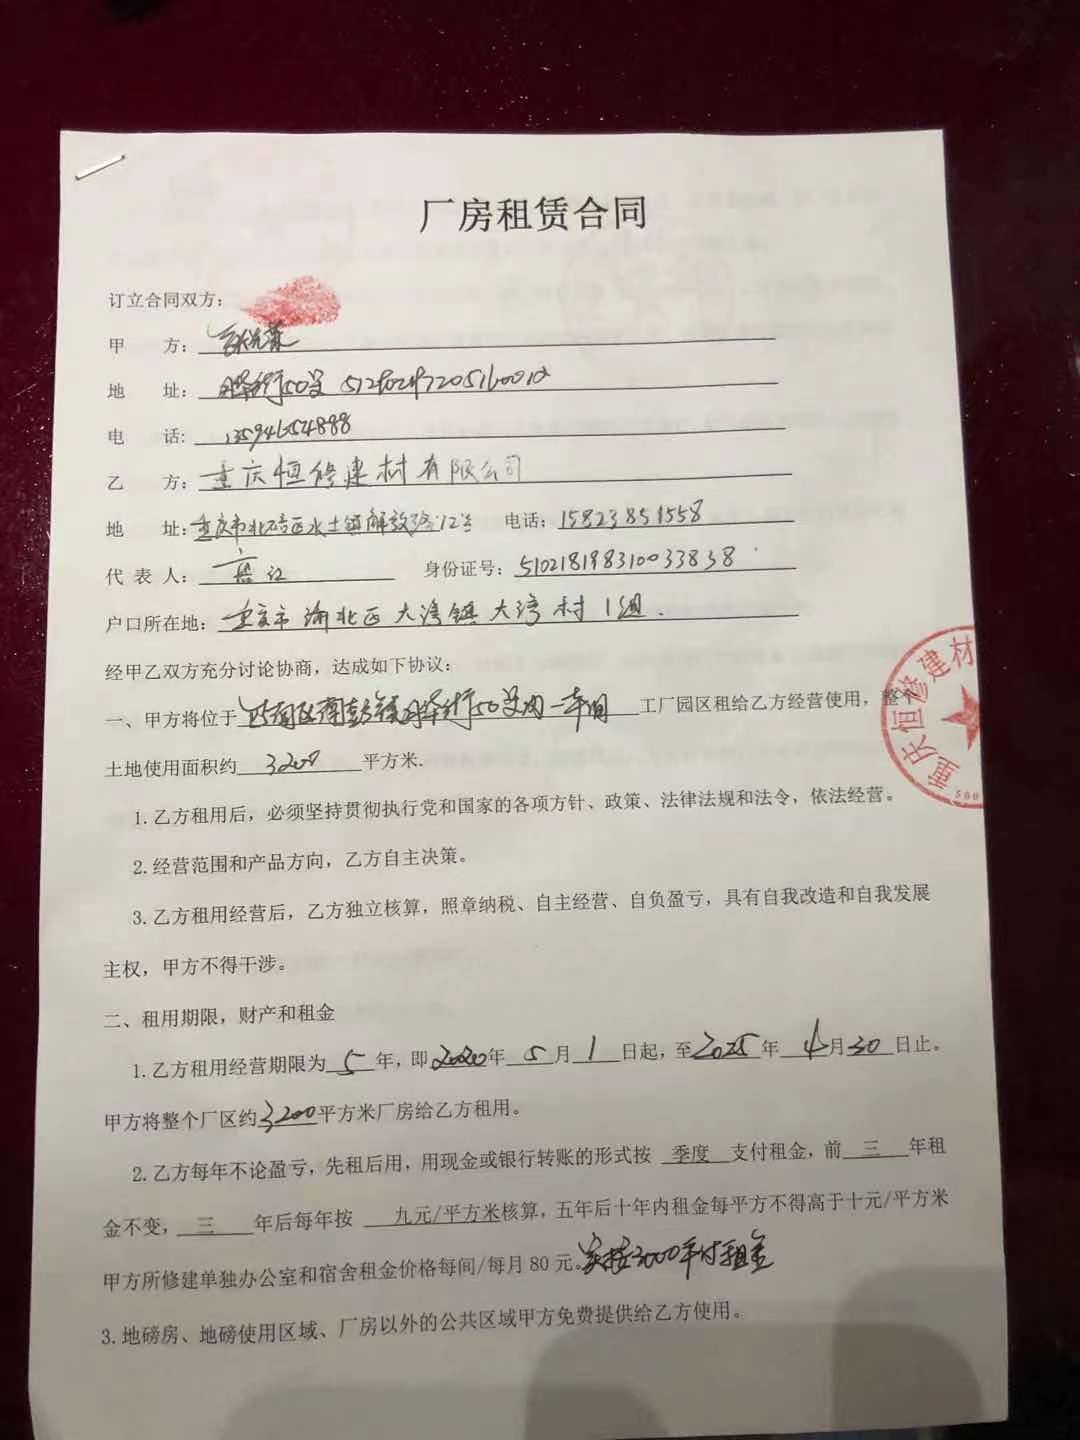 厂房租赁合同
订立合同双方：
甲 方：
地 址：50号
电 话：13594654888
乙 方：重庆恒修建材有限公司
地 址：重庆市北碚区水土镇解放路12号 电话：15823851558
代 表 人： 江 身份证号：510218198310033838
户口所在地：重庆市渝北区大湾镇大湾村1组.
经甲乙双方充分讨论协商，达成如下协议：
一、甲方将位于 50号内一车间 工厂园区租给乙方经营使用，整个
土地使用面积约 3200 平方米.
1.乙方租用后，必须坚持贯彻执行党和国家的各项方针、政策、法律法规和法令，依法经营。
2.经营范围和产品方向，乙方自主决策。
3.乙方租用经营后，乙方独立核算，照章纳税、自主经营、自负盈亏，具有自我改造和自我发展
主权，甲方不得干涉。
二、租用期限，财产和租金
1.乙方租用经营期限为 5 年，即2020年 5 月 1 日起，至2025年 4 月30日止。
甲方将整个厂区约3200平方米厂房给乙方租用。
2.乙方每年不论盈亏，先租后用，用现金或银行转账的形式按 季度 支付租金，前 三 年租
金不变， 三 年后每年按 九元/平方米核算，五年后十年内租金每平方不得高于十元/平方米
甲方所修建单独办公室和宿舍租金价格每间/每月80元。实按3000平付租金
3.地磅房、地磅使用区域、厂房以外的公共区域甲方免费提供给乙方使用。
重庆恒修建材
500